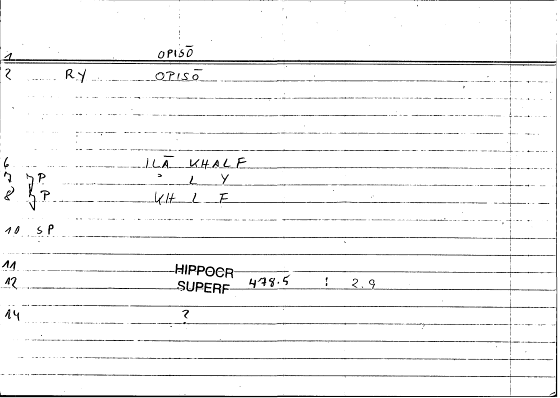 1 OPISŌ
2 RY OPISŌ
6 ILĀ KHALF
7 P. ' L Y
8 P KH L F
10 SP
11 HIPPOCR
12 SUPERF 478.5 : 2.9
14 ?